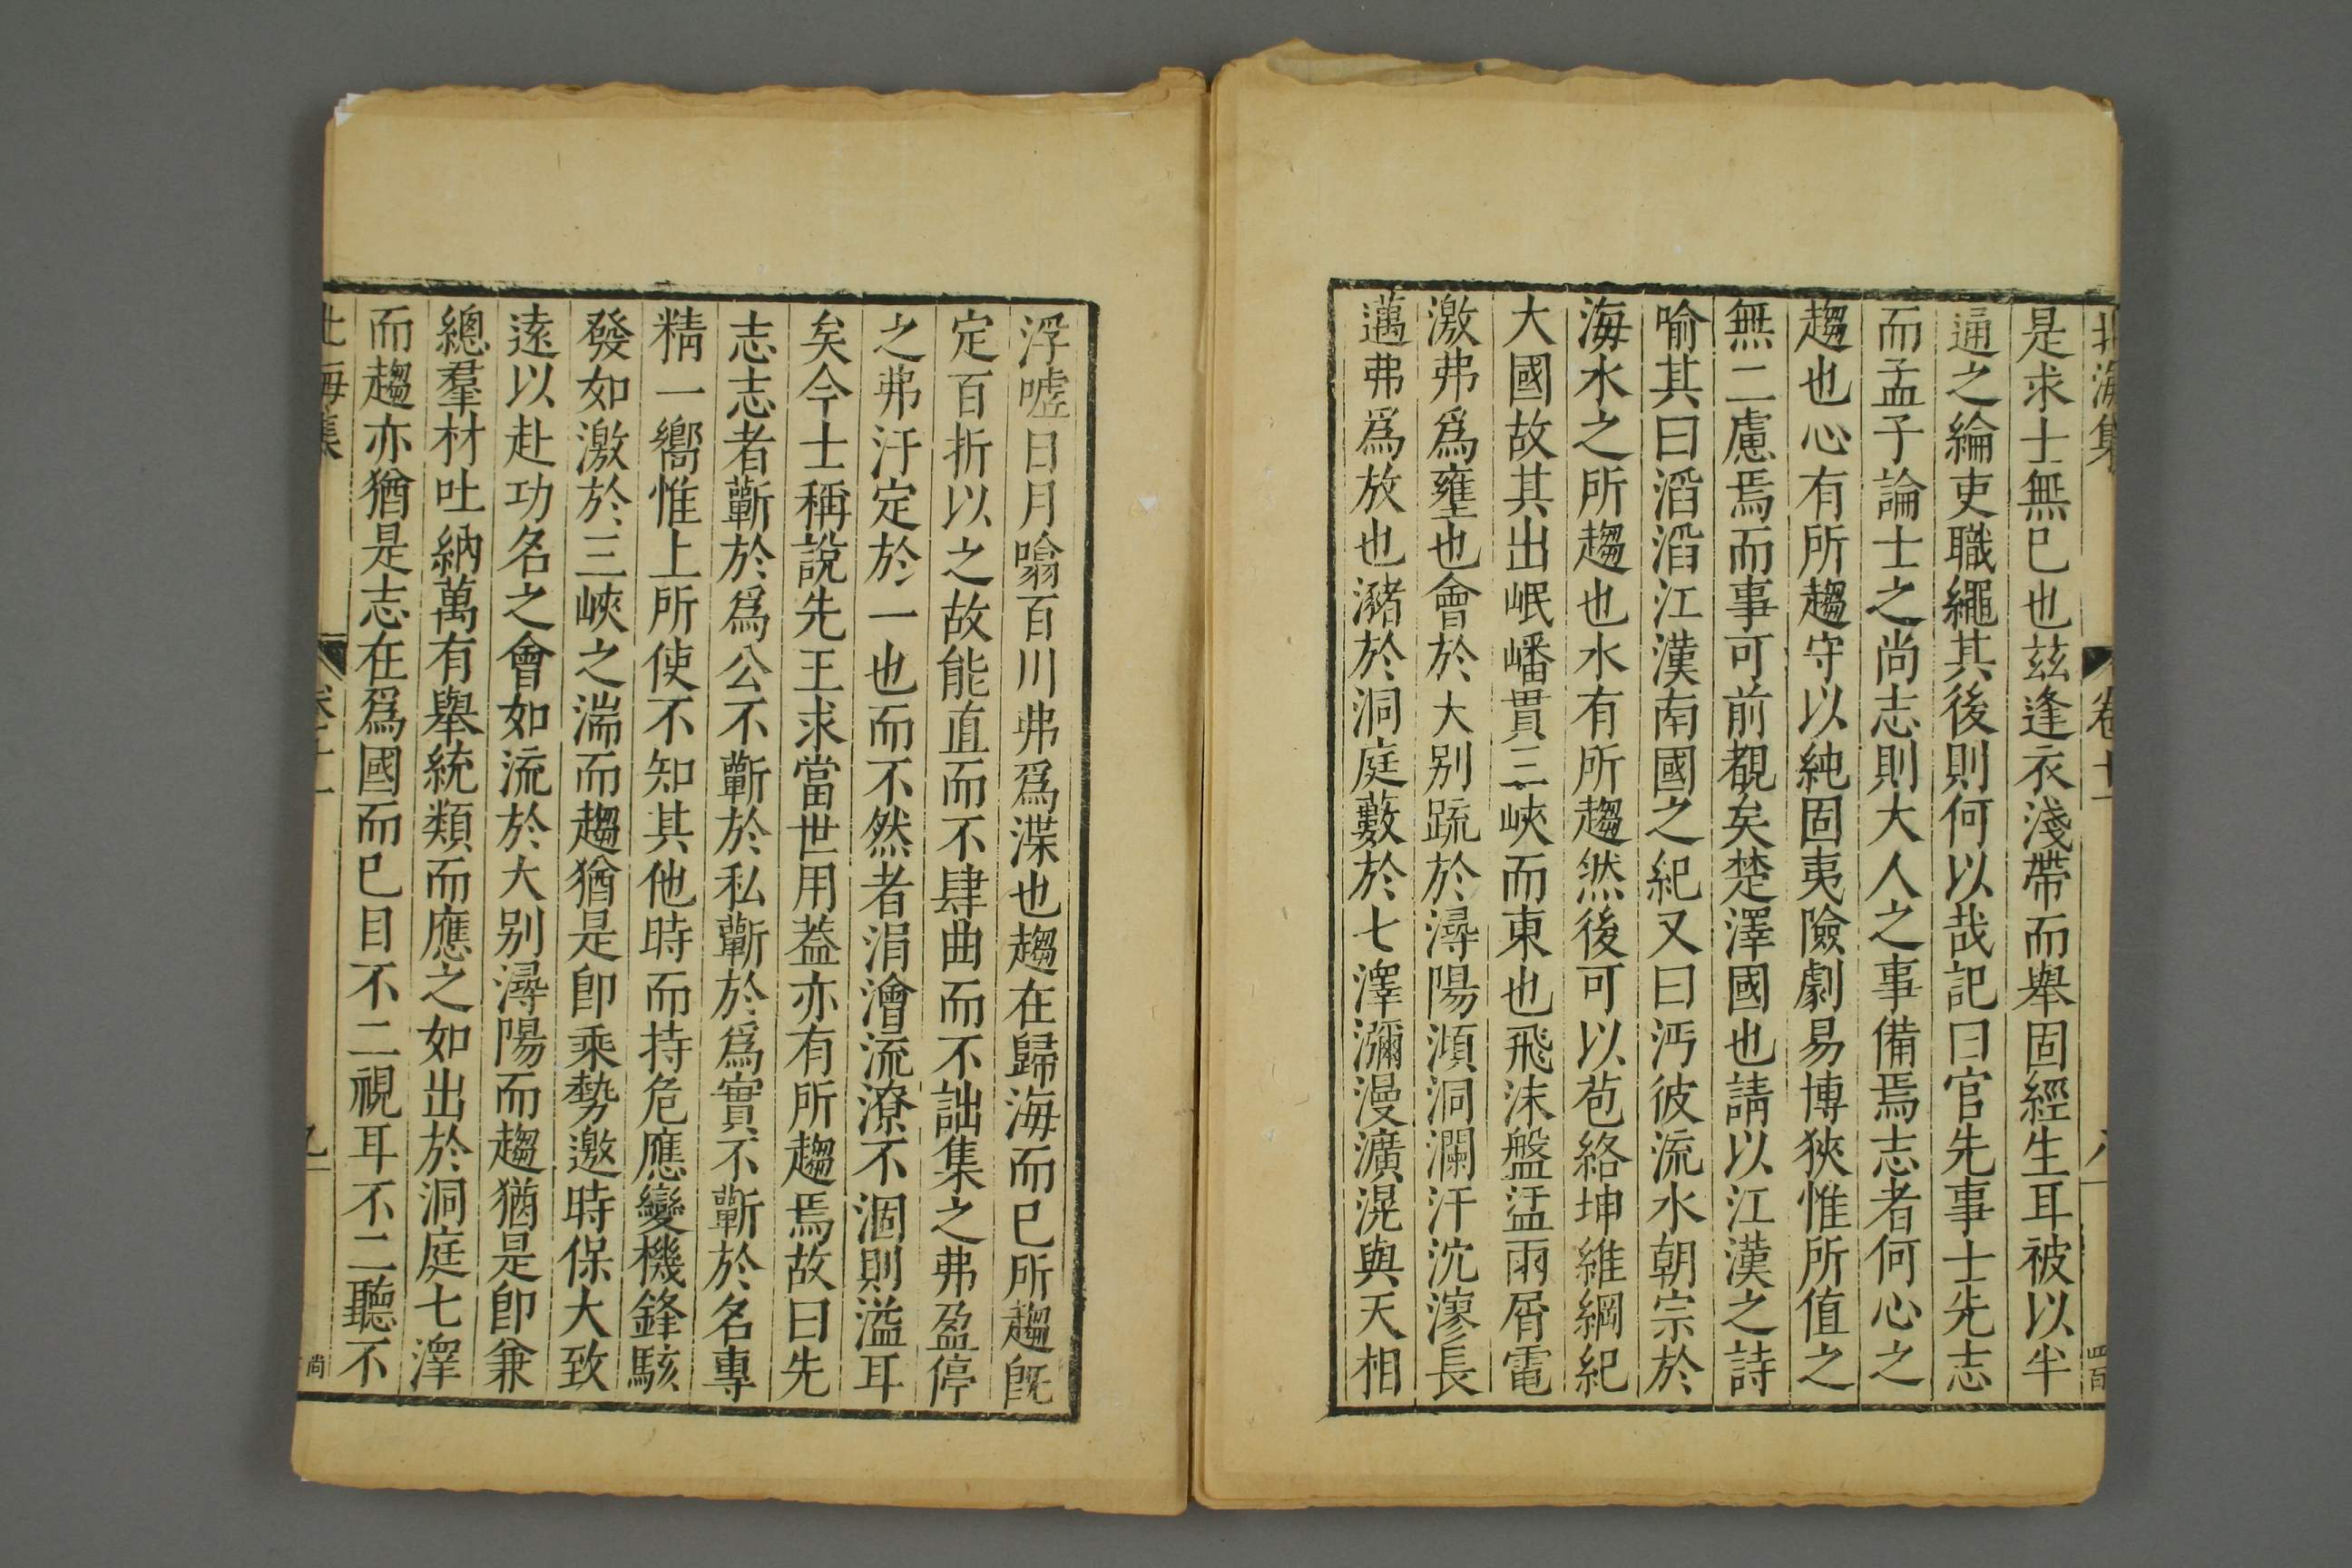 北海集
卷十一
八
四百
是求士無已也茲逢衣淺帶而舉固經生耳被以半
通之綸吏職繩其後則何以哉記曰官先事士先志
而孟子論士之尚志則大人之事備焉志者何心之
趨也心有所趨守以純固夷險劇易博狹惟所值之
無二慮焉而事可前覩矣楚澤國也請以江漢之詩
喻其曰滔滔江漢南國之紀又曰沔彼流水朝宗於
海水之所趨也水有所趨然後可以苞絡坤維綱紀
大國故其出岷嶓貫三峽而東也飛沫盤盓雨屑電
激弗爲壅也會於大别䟽於潯陽澒洞瀾汗沆漻長
邁弗爲放也瀦於洞庭藪於七澤瀰漫瀇滉與天相
浮噓日月噏百川弗爲渫也趨在歸海而已所趨旣
定百折以之故能直而不肆曲而不詘集之弗盈停
之弗汙定於一也而不然者涓澮流潦不涸則溢耳
矣今士稱說先王求當世用葢亦有所趨焉故曰先
志志者蘄於爲公不蘄於私蘄於爲實不蘄於名專
精一嚮惟上所使不知其他時而持危應變機鋒駭
發如激於三峽之湍而趨猶是卽乘勢邀時保大致
遠以赴功名之會如流於大别潯陽而趨猶是卽兼
總羣材吐納萬有舉統類而應之如出於洞庭七澤
而趨亦猶是志在爲國而已目不二視耳不二聽不
北海集
卷十一
九
尚